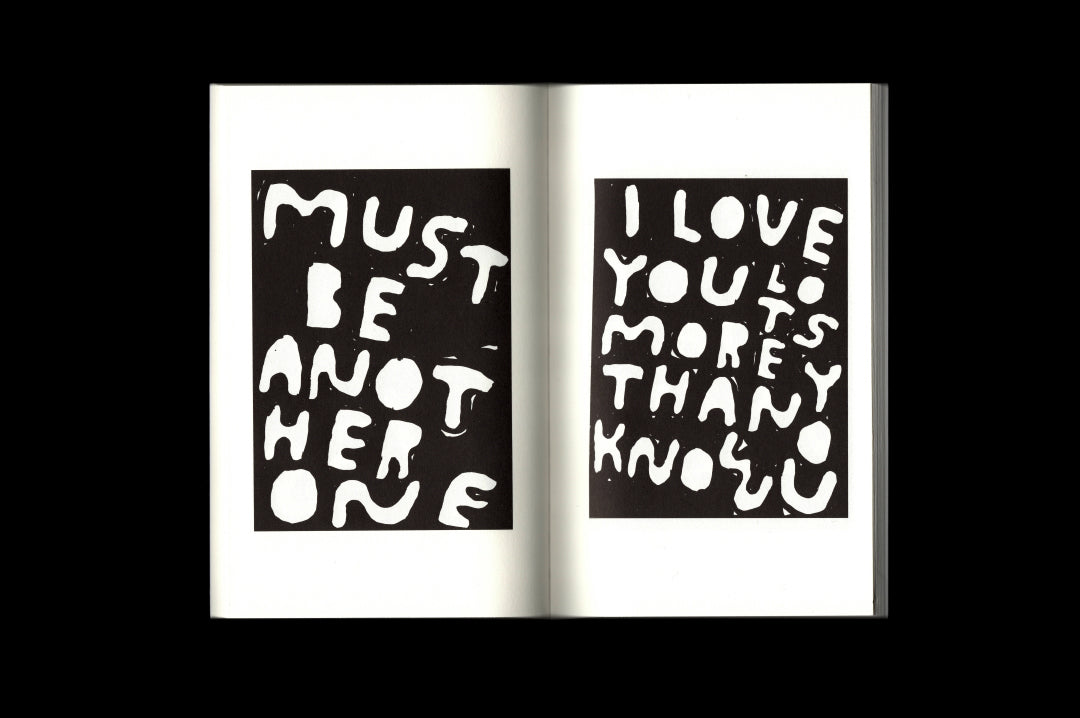 MUST
BE
ANOT
HER
ONE
I LOVE
YOU LO
TS
MORE
THAN YOU
KNOW